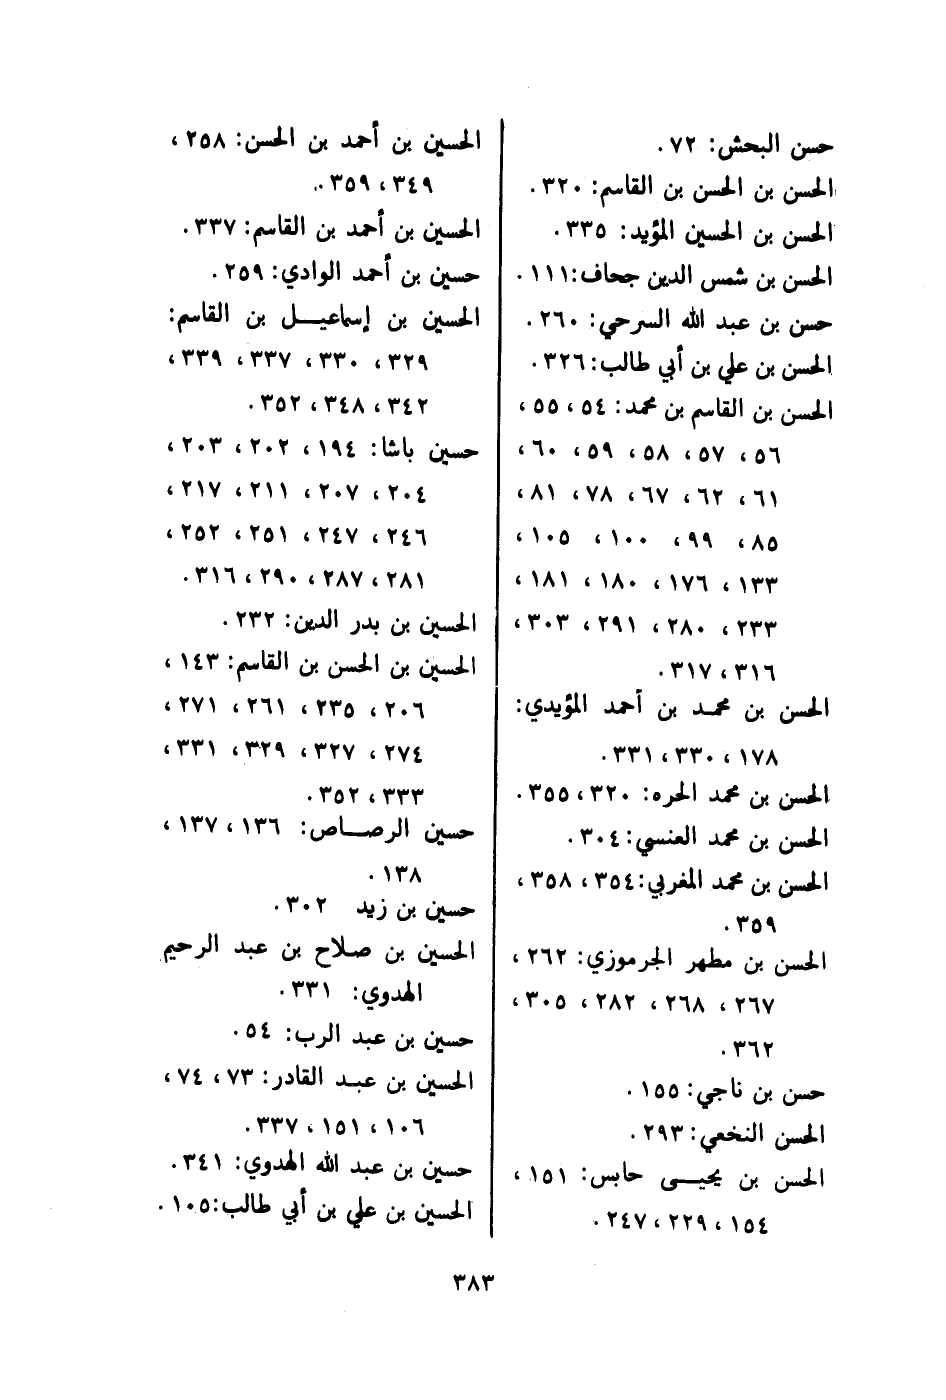 حسن البحش: ٧٢.
الحسن بن الحسن بن القاسم: ٣٢٠.
الحسن بن الحسين المؤيد: ٣٣٥.
الحسن بن شمس الدين جحاف: ١١١.
حسن بن عبد الله السرحي: ٢٦٠.
الحسن بن علي بن أبي طالب: ٣٢٦.
الحسن بن القاسم بن محمد: ٥٤، ٥٥،
٥٦، ٥٧، ٥٨، ٥٩، ٦٠،
٦١، ٦٢، ٦٧، ٧٨، ٨١،
٨٥، ٩٩، ١٠٠، ١٠٥،
١٣٣، ١٧٦، ١٨٠، ١٨١،
٢٣٣، ٢٨٠، ٢٩١، ٣٠٣،
٣١٦، ٣١٧.
الحسن بن محمد بن أحمد المؤيدي:
١٧٨، ٣٣٠، ٣٣١.
الحسن بن محمد الحره: ٣٢٠، ٣٥٥.
الحسن بن محمد العنسي: ٣٠٤.
الحسن بن محمد المغربي: ٣٥٤، ٣٥٨،
٣٥٩.
الحسن بن مطهر الجرموزي: ٢٦٢،
٢٦٧، ٢٦٨، ٢٨٢، ٣٠٥،
٣٦٢.
حسن بن ناجي: ١٥٥.
الحسن النخعي: ٢٩٣.
الحسن بن يحيـى حابس: ١٥١،
١٥٤، ٢٢٩، ٢٤٧.
الحسين بن أحمد بن الحسن: ٢٥٨،
٣٤٩، ٣٥٩.
الحسين بن أحمد بن القاسم: ٣٣٧.
حسين بن أحمد الوادي: ٢٥٩.
الحسين بن إسماعيـل بن القاسم:
٣٢٩، ٣٣٠، ٣٣٧، ٣٣٩،
٣٤٢، ٣٤٨، ٣٥٢.
حسين باشا: ١٩٤، ٢٠٢، ٢٠٣،
٢٠٤، ٢٠٧، ٢١١، ٢١٧،
٢٤٦، ٢٤٧، ٢٥١، ٢٥٢،
٢٨١، ٢٨٧، ٢٩٠، ٣١٦.
الحسين بن بدر الدين: ٢٣٢.
الحسين بن الحسن بن القاسم: ١٤٣،
٢٠٦، ٢٣٥، ٢٦١، ٢٧١،
٢٧٤، ٣٢٧، ٣٢٩، ٣٣١،
٣٣٣، ٣٥٢.
حسين الرصـاص: ١٣٦، ١٣٧،
١٣٨.
حسين بن زيد ٣٠٢.
الحسين بن صلاح بن عبد الرحيم
الهدوي: ٣٣١.
حسين بن عبد الرب: ٥٤.
الحسين بن عبـد القادر: ٧٣، ٧٤،
١٠٦، ١٥١، ٣٣٧.
حسين بن عبد الله الهدوي: ٣٤١.
الحسين بن علي بن أبي طالب: ١٠٥.
٣٨٣